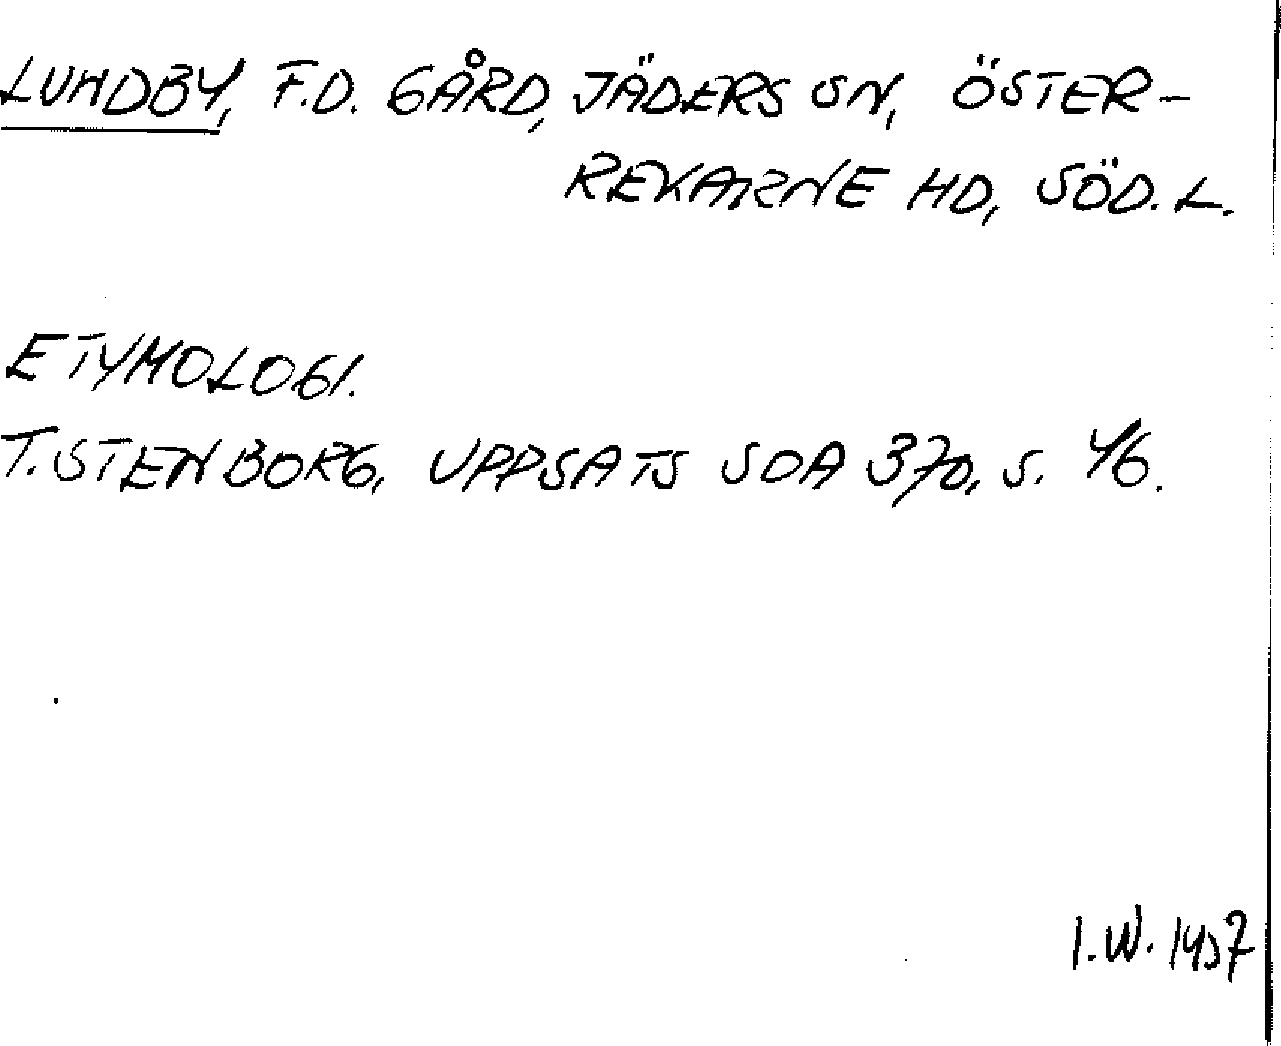 LUNDBY, F.D. GÅRD, JÄDERS SN, ÖSTER-
REKARNE HD, SÖD.L.
ETYMOLOGI.
T. STENBORG, UPPSATS SOA 370, S. 46.
I.W. 1957